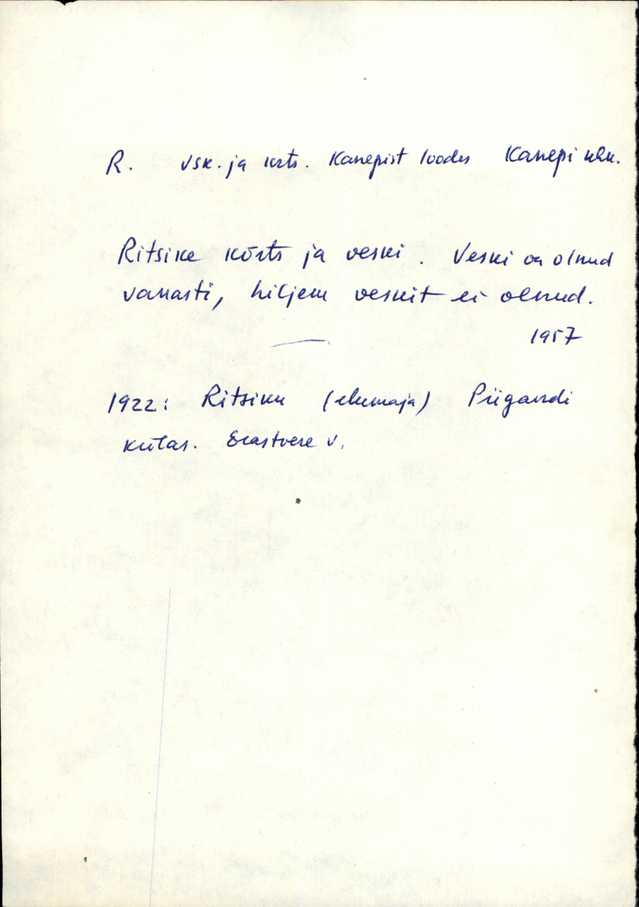 R. vsk. ja krts. Kanepist loodes Kanepi khk.
Ritsike kõrts ja veski. Veski on olnud
vanasti, hiljem veskit ei olnud.
1957
1922: Ritsiku (elumaja) Piigandi
külas. Erastvere v.